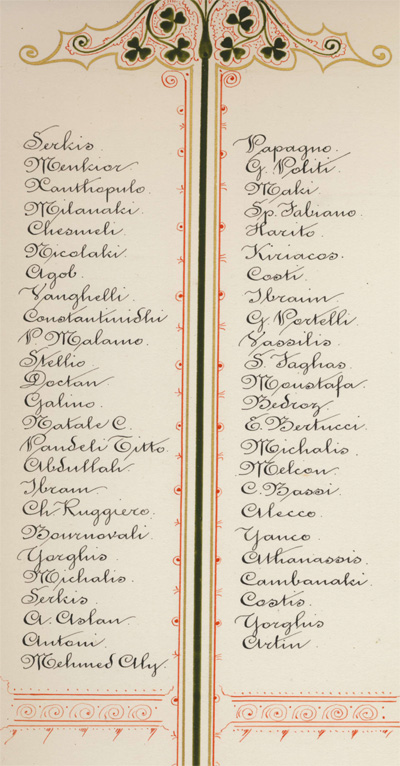 Serkis.
Menkior.
Xanthopulo.
Milanaki.
Chesmeli.
Nicolaki.
Agob.
Vanghelli.
Constantinidhi
P. Malamo.
Stellio.
Doctan.
Galino.
Natale C.
Pandeli Titto.
Abdullah.
Ibram.
Ch. Ruggiero.
Bournovali.
Yorghis.
Michalis.
Serkis.
A. Aslan.
Antoni.
Mehmed Aly.
Papagno.
G. Politi.
Maki.
Sp. Fabiano.
Harito.
Kiriacos.
Costi.
Ibraim.
G. Portelli.
Vassilis.
S. Faghas.
Moustafa.
Bedroz.
E. Bertucci.
Michalis.
Melcon.
C. Bassi.
Alecco.
Yanco.
Athanassis.
Cambanaki.
Costis.
Yorghis.
Artin.